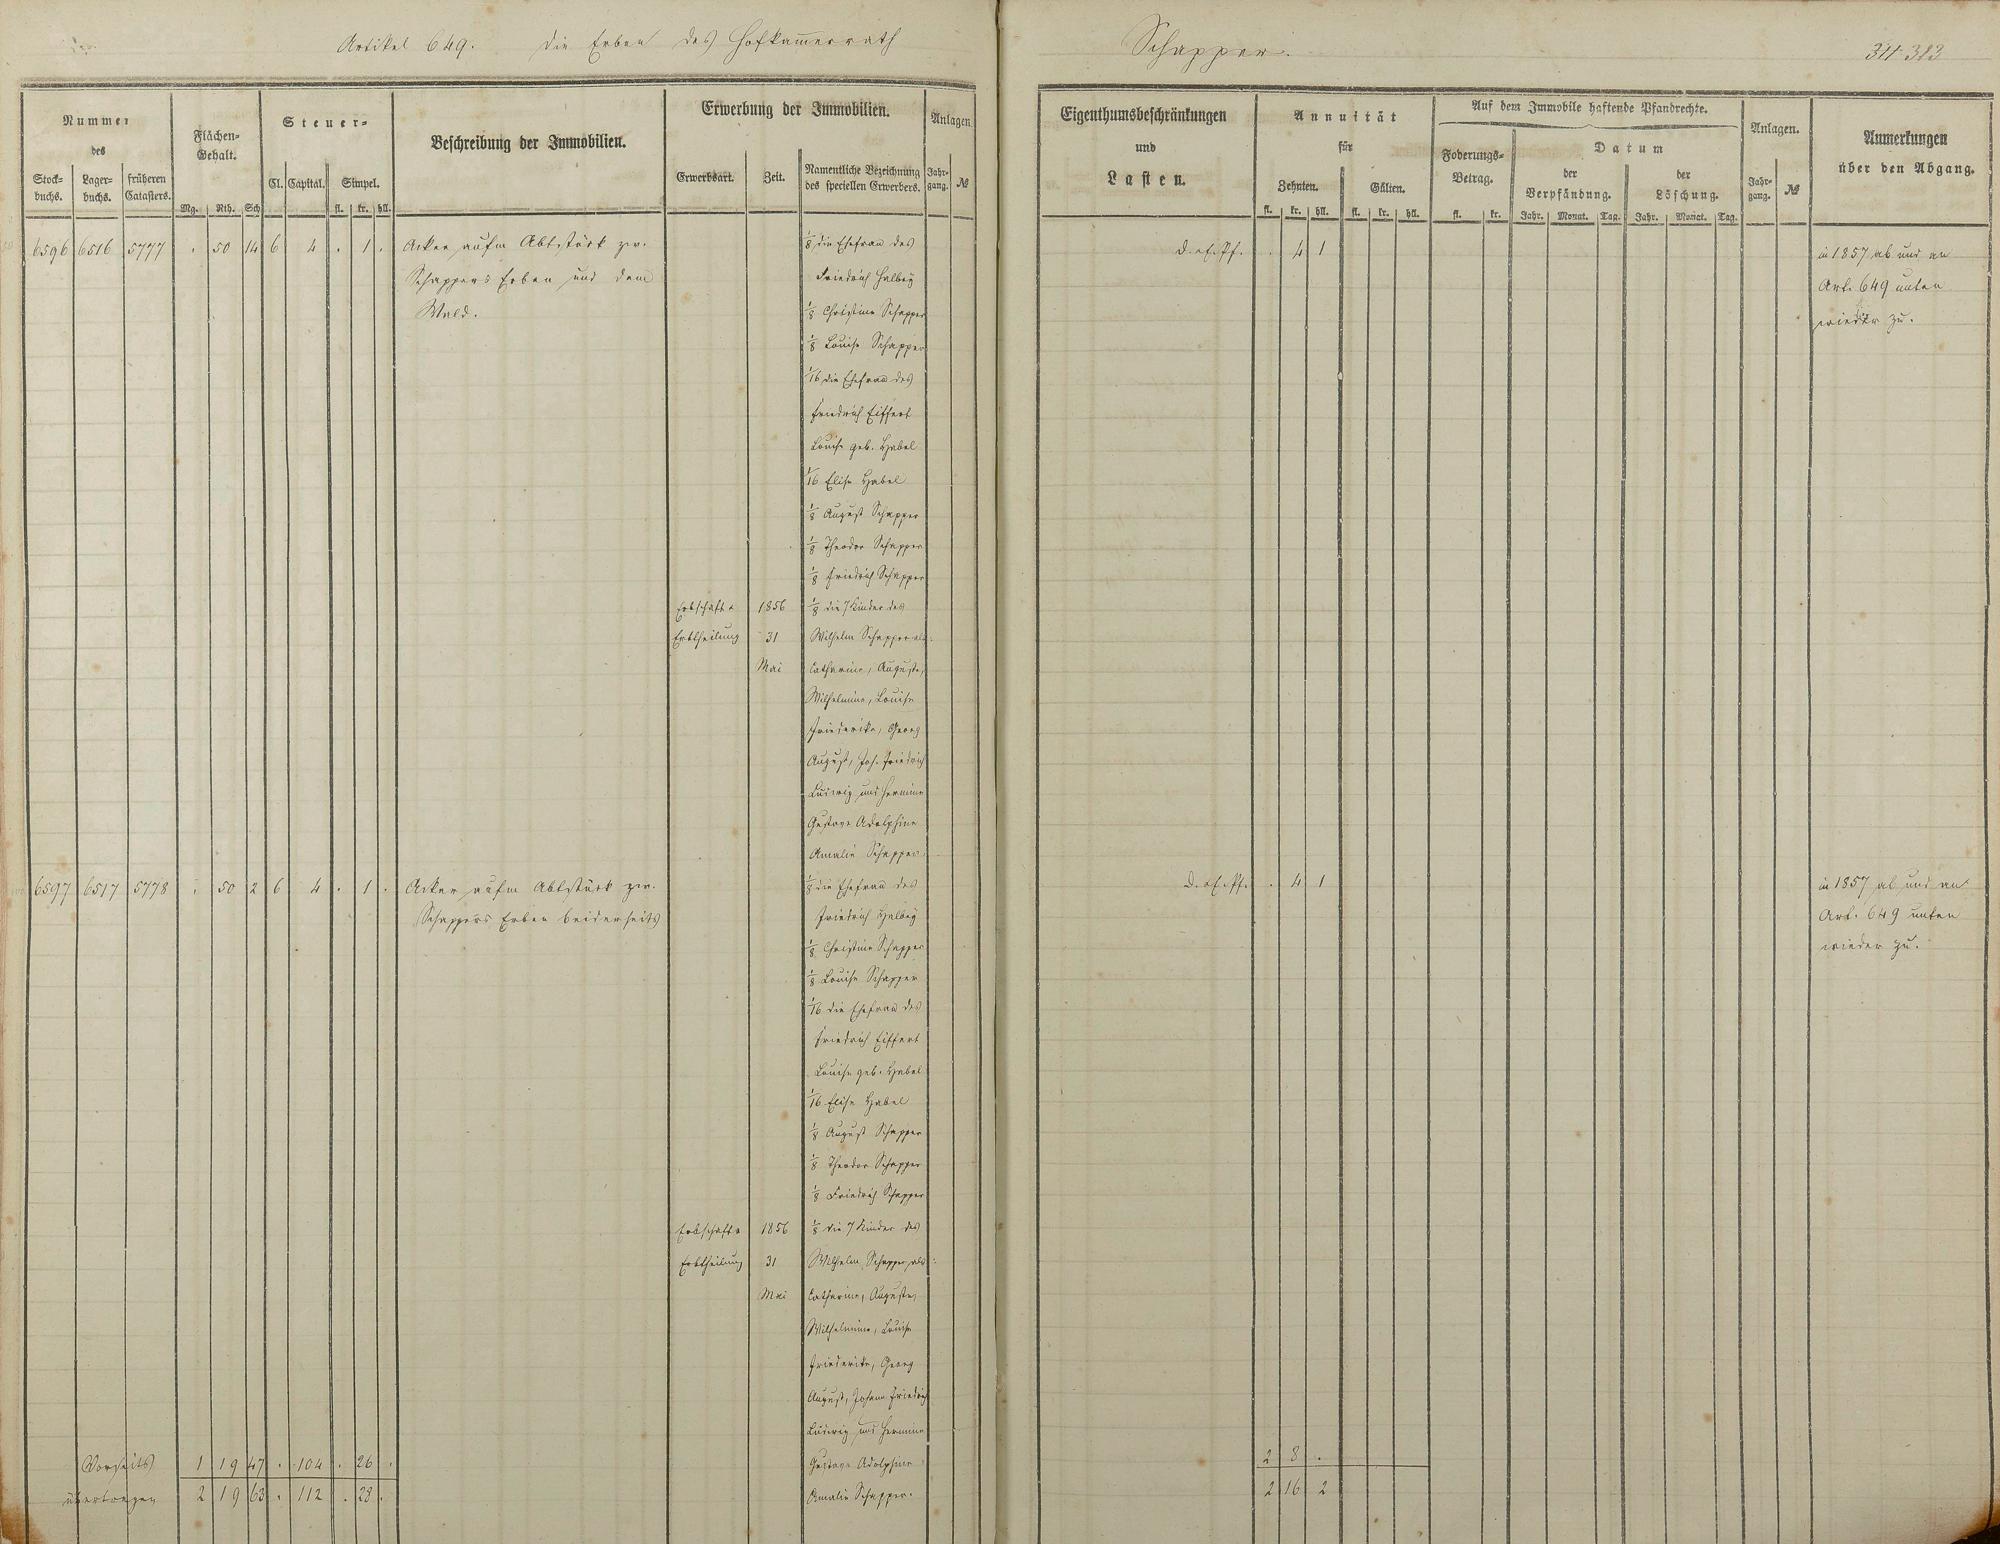 Artikel 649. Die Erben des Hofkammerrath Schapper. 311-313
Nummer des
Stock-buchs. Lager-buchs. früheren Catasters.
Flächen-Gehalt.
Mg. Rth. Sch
Steuer-
Cl. Capital. Simpel.
fl. kr. hll.
Beschreibung der Immobilien.
Erwerbung der Immobilien.
Erwerbsart. Zeit. Namentliche Bezeichnung des speciellen Erwerbers.
Anlagen.
Jahr-gang. №
Eigenthumsbeschränkungen
und
Lasten.
Annuität
für
Zehnten. Gülten.
fl. kr. hll. fl. kr. hll.
Auf dem Immobile haftende Pfandrechte.
Foderungs-Betrag.
fl. kr.
Datum
der Verpfändung. der Löschung.
Jahr. Monat. Tag. Jahr. Monat. Tag.
Anlagen.
Jahr-gang. №
Anmerkungen
über den Abgang.
6596 6516 5777 . 50 14 6 4 . 1 .
Acker aufm Abtstück zw.
Schappers Erben und dem
Wald.
1/8 die Ehefrau des
Friedrich Halbey
1/8 Christine Schapper
1/8 Louise Schapper
1/16 die Ehefrau des
Friedrich Eiffert
Louise geb. Habel
1/16 Elise Habel
1/8 August Schapper
1/8 Theodor Schapper
1/8 Friedrich Schapper
Erbschaft u 1856 1/8 die 7 Kinder des
Erbtheilung 31 Wilhelm Schapper als:
Mai Catharine, Auguste,
Wilhelmine, Louise
Friederike, Georg
August, Joh. Friedrich
Ludwig und Hermine
Gustave Adolphine
Amalie Schapper.
D. & E. Pf. . 4 1
in 1857 ab und an
Art. 649 unten
wieder zu.
6597 6517 5778 . 50 2 6 4 . 1 .
Acker aufm Abtstück zw.
Schappers Erben beiderseits
1/8 die Ehefrau des
Friedrich Halbey
1/8 Christine Schapper
1/8 Louise Schapper
1/16 die Ehefrau des
Friedrich Eiffert
Louise geb. Habel
1/16 Elise Habel
1/8 August Schapper
1/8 Theodor Schapper
1/8 Friedrich Schapper
Erbschaft u 1856 1/8 die 7 Kinder des
Erbtheilung 31 Wilhelm Schapper als:
Mai Catharine, Auguste,
Wilhelmine, Louise
Friederike, Georg
August, Johann Friedrich
Ludwig und Hermine
Gustave Adolphine
Amalie Schapper.
D. & E. Pf. . 4 1
in 1857 ab und an
Art. 649 unten
wieder zu.
Vorseits 1 19 47 . 104 . 26 . 2 8 .
übertragen 2 19 63 . 112 . 28 . 2 16 2